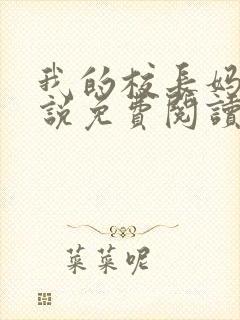 我的校长妈
說免費閱讀
菜菜呢